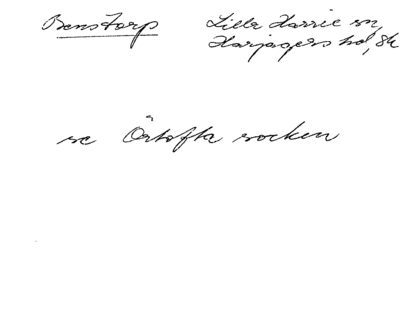 Benstorp Lilla Harrie sn,
Harjagers hd, Sk
se Örtofta socken